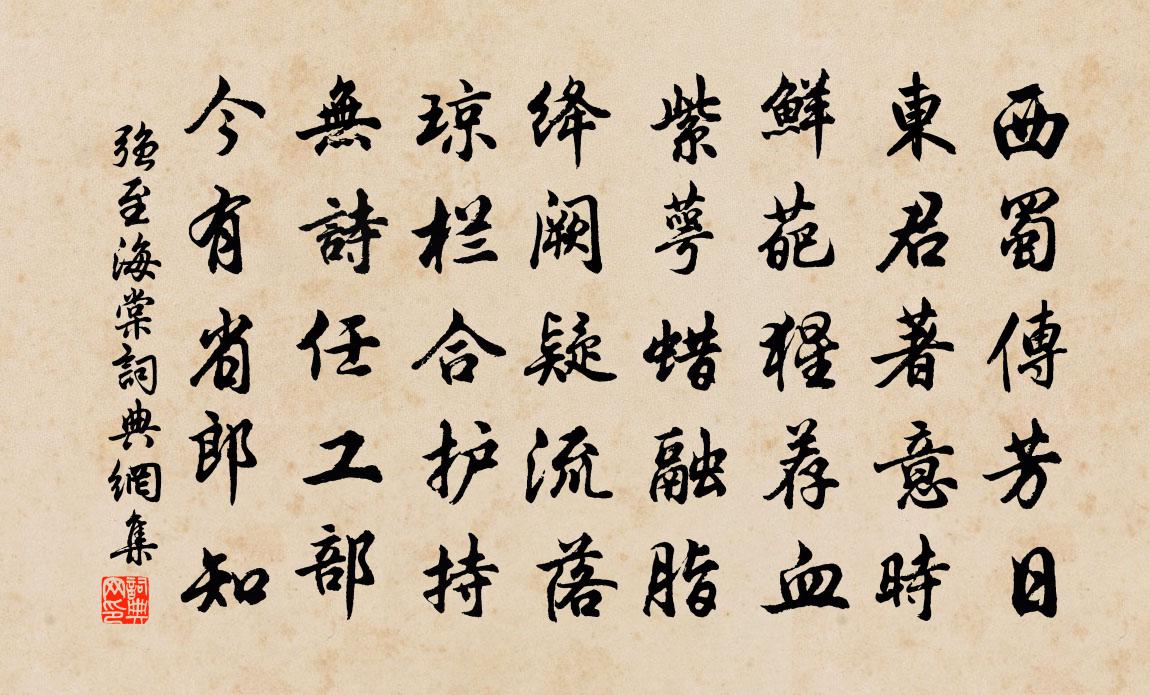 西蜀傳芳日
東君著意時
鮮葩猩荐血
紫萼蜡融脂
绛阙疑流落
琼栏合护持
無詩任工部
今有省郎知
強至海棠詞典網集
詞典网印